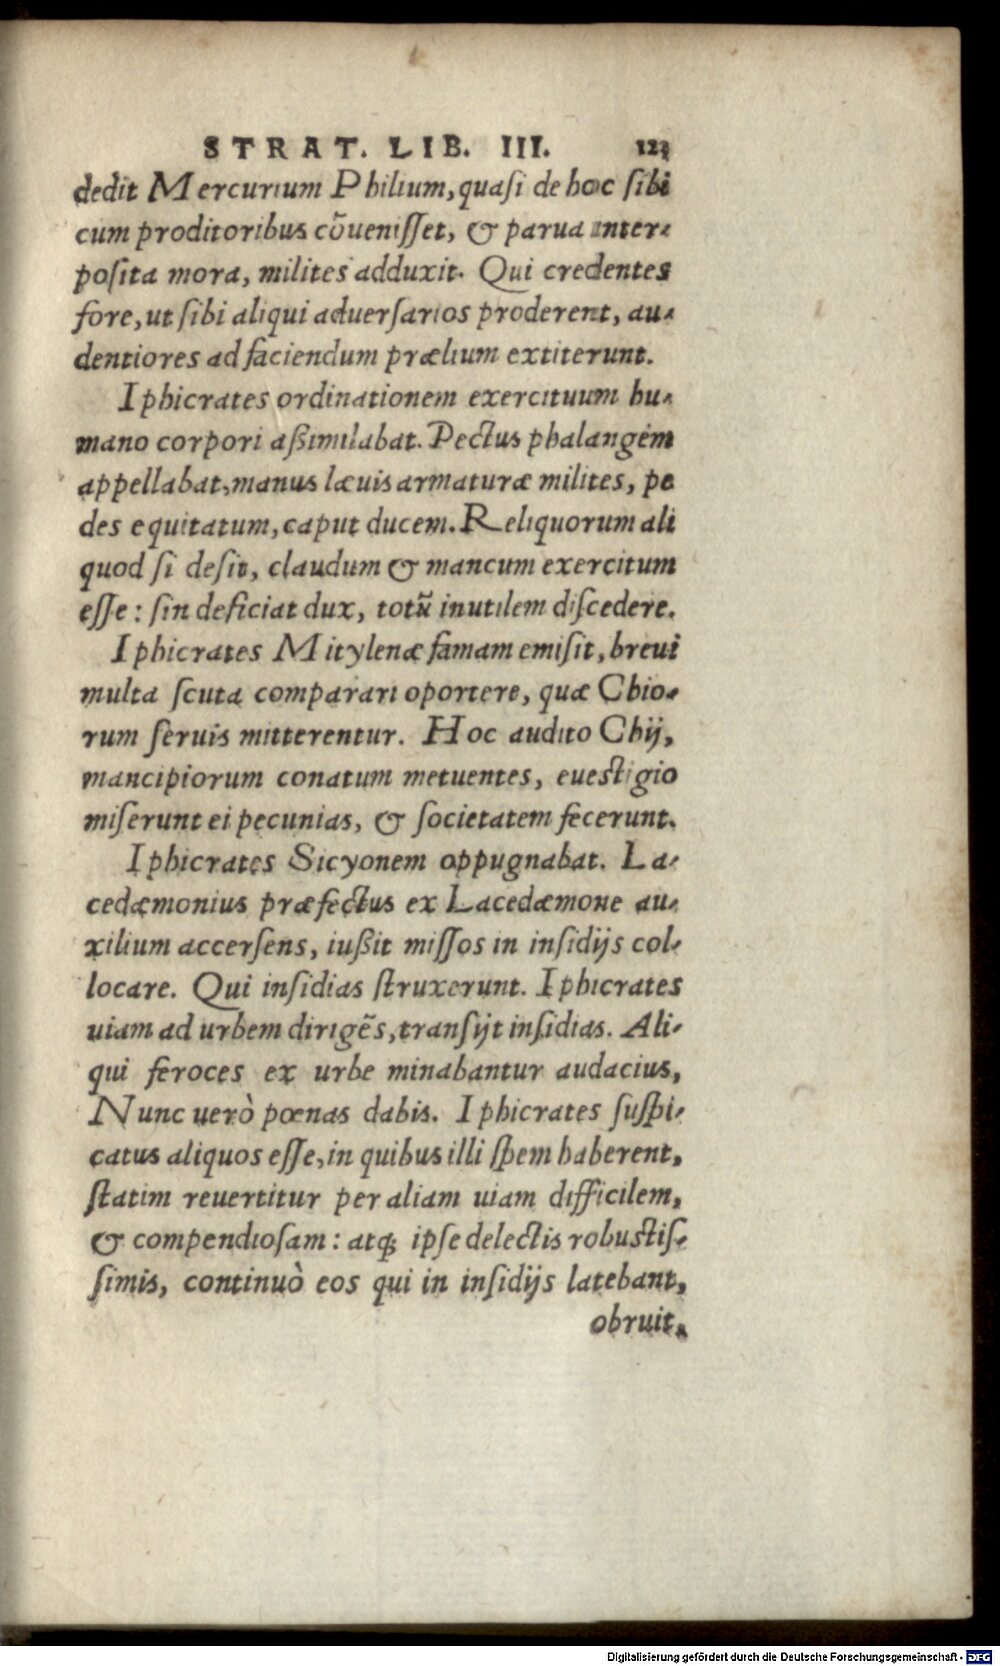 STRAT. LIB. III. 123
dedit Mercurium Philium, quaſi de hoc ſibi
cum proditoribus cõueniſſet, & parua inter-
poſita mora, milites adduxit. Qui credentes
fore, ut ſibi aliqui aduerſarios proderent, au-
dentiores ad faciendum prælium extiterunt.
Iphicrates ordinationem exercituum hu-
mano corpori aßimilabat. Pectus phalangem
appellabat, manus læuis armaturæ milites, pe
des equitatum, caput ducem. Reliquorum ali
quod ſi deſit, claudum & mancum exercitum
eſſe: ſin deficiat dux, totũ inutilem diſcedere.
Iphicrates Mitylenæ famam emiſit, breui
multa ſcuta comparari oportere, quæ Chio-
rum ſeruis mitterentur. Hoc audito Chij,
mancipiorum conatum metuentes, eueſtigio
miſerunt ei pecunias, & ſocietatem fecerunt.
Iphicrates Sicyonem oppugnabat. La-
cedæmonius præfectus ex Lacedæmone au-
xilium accerſens, iußit miſſos in inſidijs col-
locare. Qui inſidias ſtruxerunt. Iphicrates
uiam ad urbem dirigẽs, tranſijt inſidias. Ali-
qui feroces ex urbe minabantur audacius,
Nunc uerò pœnas dabis. Iphicrates ſuſpi-
catus aliquos eſſe, in quibus illi ſpem haberent,
ſtatim reuertitur per aliam uiam difficilem,
& compendioſam: atq; ipſe delectis robuſtiſ-
ſimis, continuò eos qui in inſidijs latebant,
obruit,
Digitalisierung gefördert durch die Deutsche Forschungsgemeinschaft - DFG